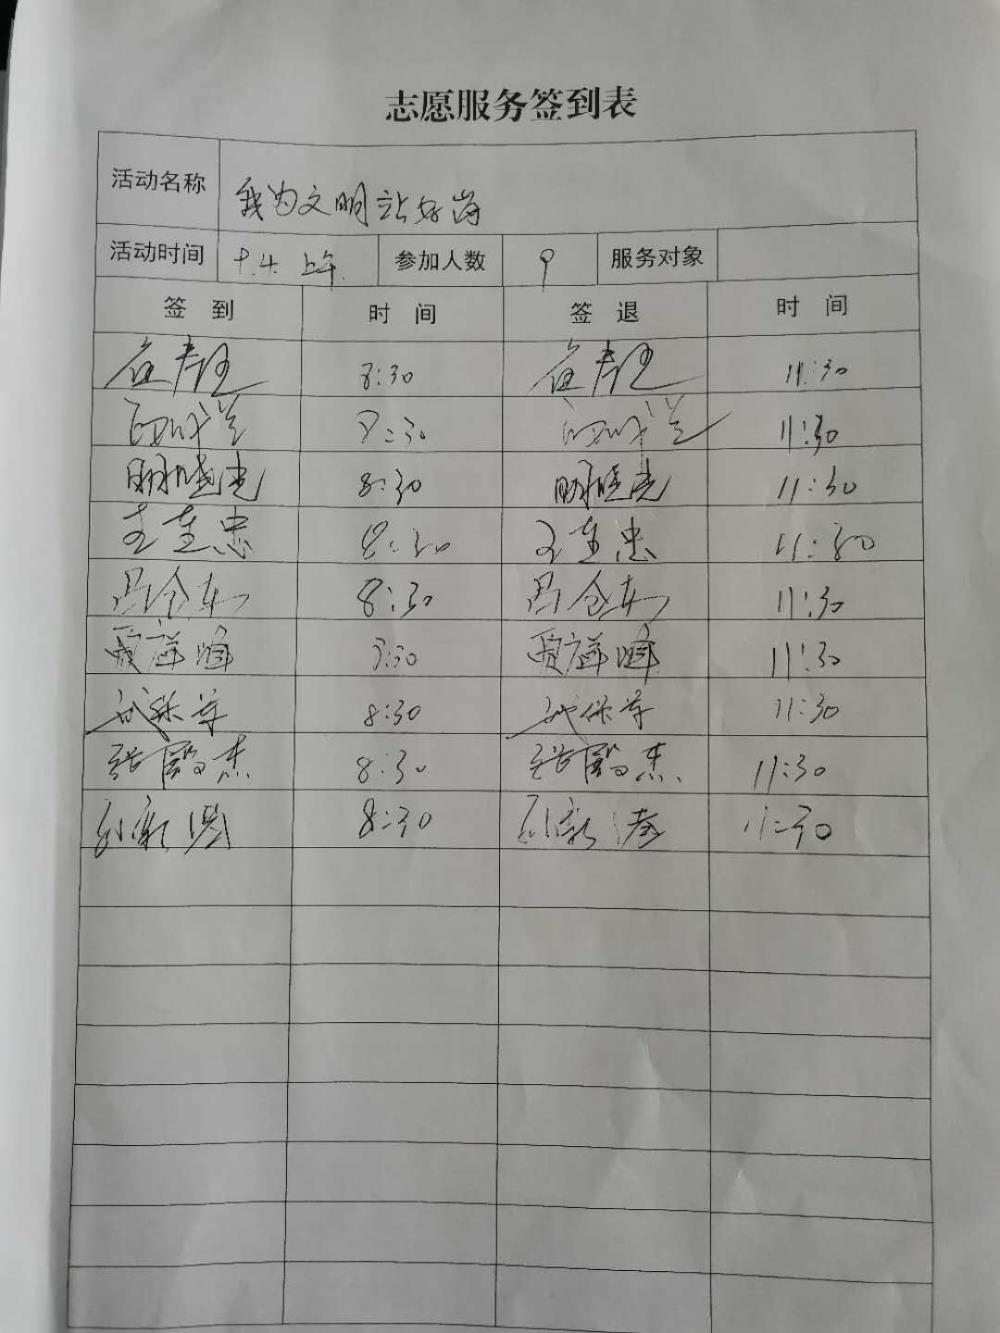 志愿服务签到表
活动名称 我为文明站好岗
活动时间 9.4.上午. 参加人数 9 服务对象
签到 时间 签退 时间
8:30 11:30
8:30 11:30
明晓光 8:30 明晓光 11:30
王连忠 8:30 王连忠 11:30
吕仓车 8:30 吕仓车 11:30
贾祥峰 8:30 贾祥峰 11:30
武保华 8:30 武保华 11:30
张殿杰 8:30 张殿杰 11:30
8:30 11:30